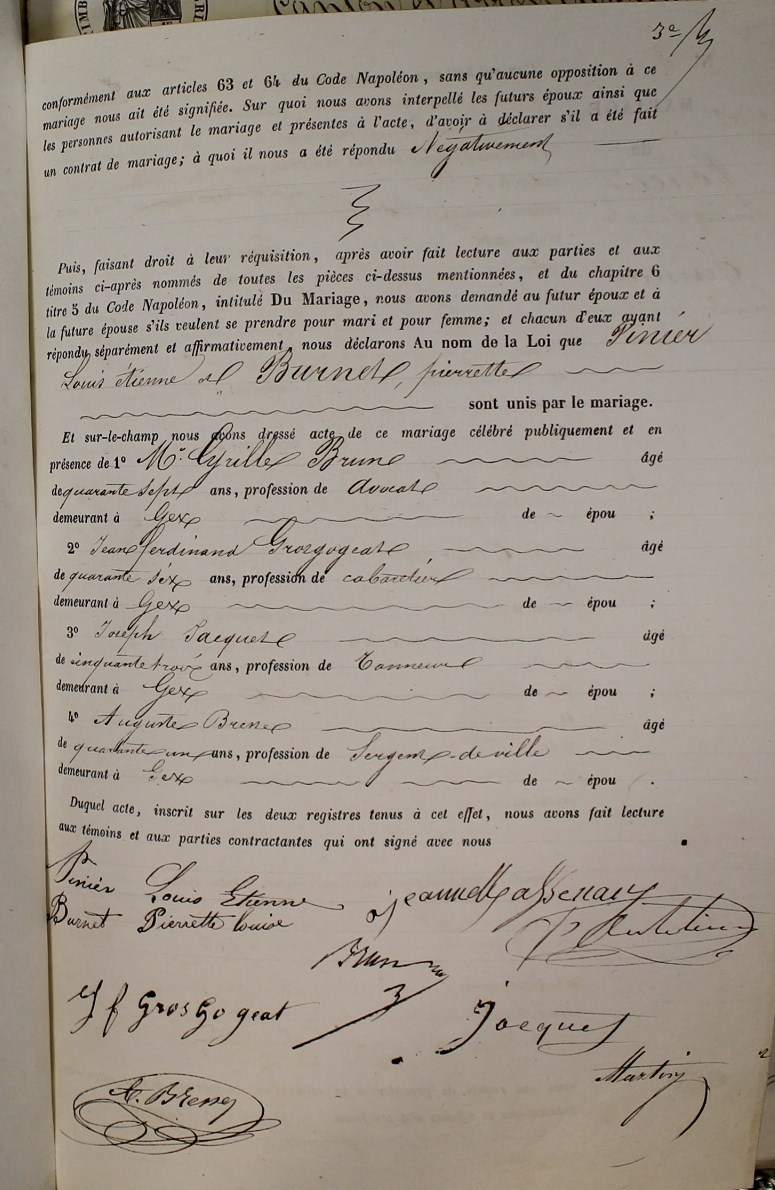 conformément aux articles 63 et 64 du Code Napoléon, sans qu'aucune opposition à ce
mariage nous ait été signifiée. Sur quoi nous avons interpellé les futurs époux ainsi que
les personnes autorisant le mariage et présentes à l'acte, d'avoir à déclarer s'il a été fait
un contrat de mariage; à quoi il nous a été répondu Négativement
Puis, faisant droit à leur réquisition, après avoir fait lecture aux parties et aux
témoins ci-après nommés de toutes les pièces ci-dessus mentionnées, et du chapitre 6
titre 5 du Code Napoléon, intitulé Du Mariage, nous avons demandé au futur époux et à
la future épouse s'ils veulent se prendre pour mari et pour femme; et chacun d'eux ayant
répondu séparément et affirmativement, nous déclarons Au nom de la Loi que Pinier
Louis étienne et Burnet, pierrette
sont unis par le mariage.
Et sur-le-champ nous avons dressé acte de ce mariage célébré publiquement et en
présence de 1º Mr. Cyrille Brun âgé
de quarante sept ans, profession de avocat
demeurant à Gex de épou ;
2º Jean ferdinand Grosgogeat âgé
de quarante six ans, profession de cabaretier
demeurant à Gex de épou ;
3º Joseph Jacquet âgé
de cinquante trois ans, profession de Tanneur
demeurant à Gex de épou ;
4º Auguste Brene âgé
de quarante un ans, profession de Sergent-de-ville
demeurant à Gex de épou .
Duquel acte, inscrit sur les deux registres tenus à cet effet, nous avons fait lecture
aux témoins et aux parties contractantes qui ont signé avec nous
Pinier Louis Etienne
Burnet Pierrette louise
Brun
J f GrosGogeat Jacquet
Martin
A. Brene